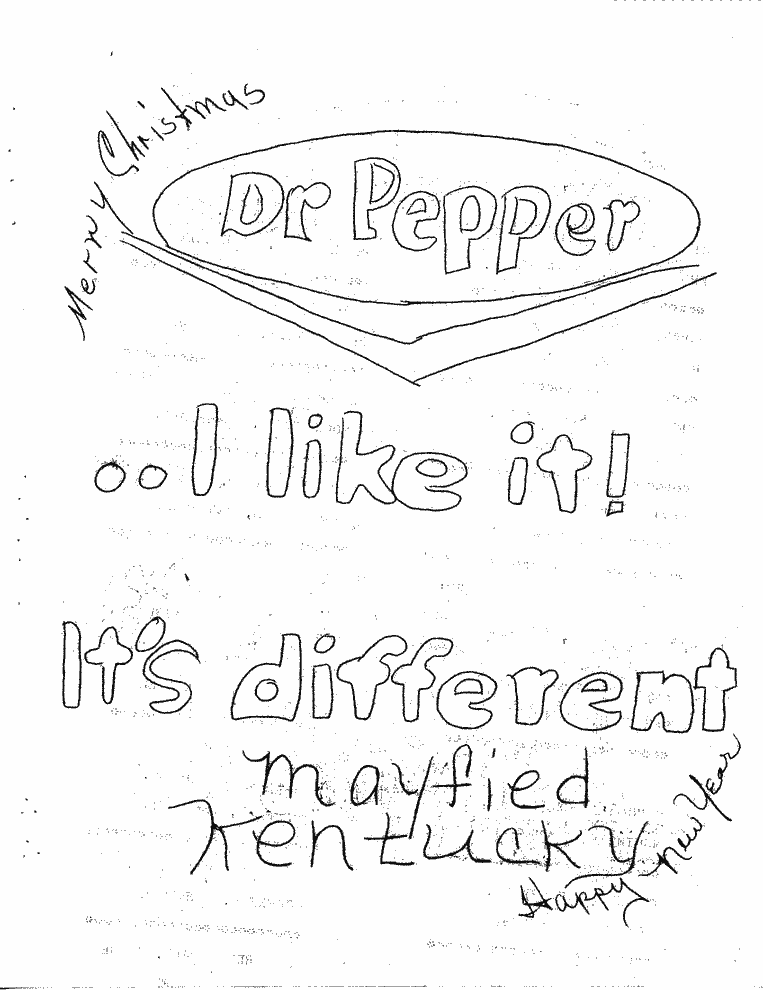 Merry Christmas
Dr Pepper
..I like it!
It's different
mayfied
Kentucky
Happy New Year